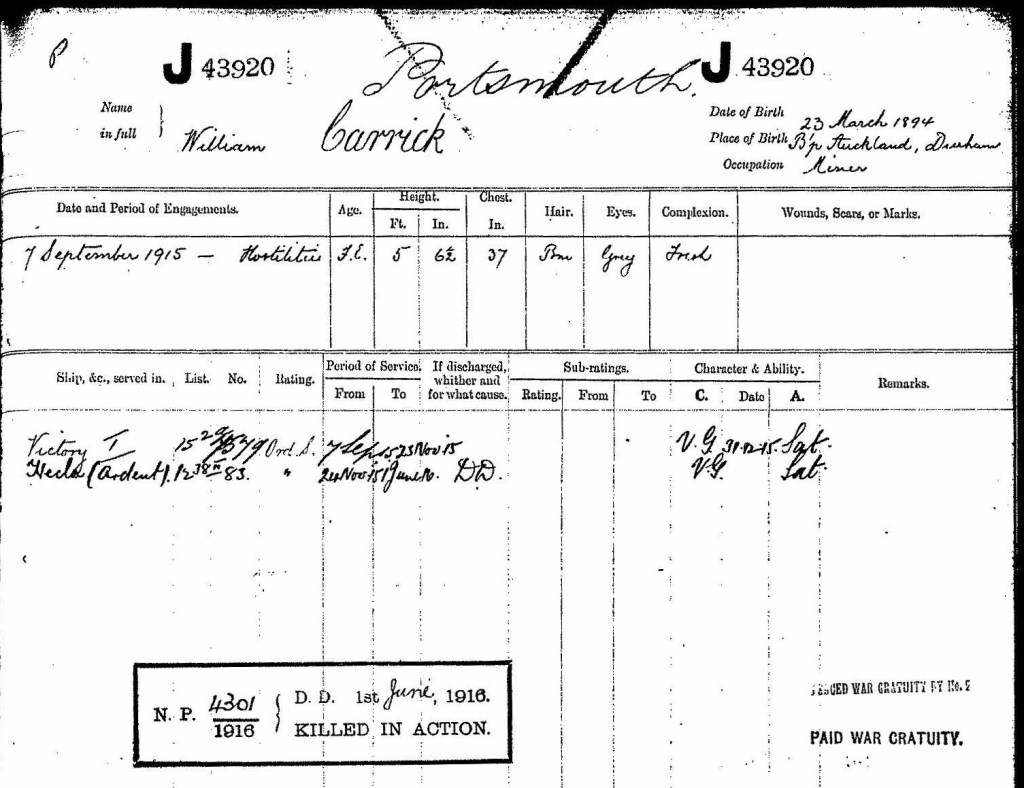 P
J 43920 Portsmouth. J 43920
Name in full } William Carrick
Date of Birth 23 March 1894
Place of Birth B'p Auckland, Durham
Occupation Miner
Date and Period of Engagements. Age. Height. Ft. In. Chest. In. Hair. Eyes. Complexion. Wounds, Scars, or Marks.
7 September 1915 — Hostilities 5 6½ 37 Brn Grey Fresh
Ship, &c., served in. List. No. Rating. Period of Service. From To If discharged, whither and for what cause. Sub-ratings. Rating. From To Character & Ability. C. Date A. Remarks.
Victory I Ord. S. 7 Sep 15 23 Nov 15 V.G. 31-12-15 Sat.
Hecla (Ardent). 12 83. " 24 Nov 15 1 June 16. DD. V.G. Sat
N. P. 4301/1916 { D. D. 1st June, 1916.
KILLED IN ACTION.
WAR GRATUITY
PAID WAR GRATUITY.